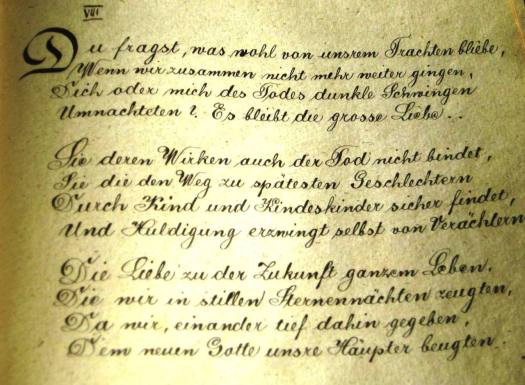 VIII
Du fragst, was wohl von unsrem Trachten bliebe,
Wenn wir zusammen nicht mehr weiter gingen,
Dich oder mich des Todes dunkle Schwingen
Umnachteten? Es bleibt die grosse Liebe..
Sie deren Wirken auch der Tod nicht bindet,
Sie die den Weg zu spätesten Geschlechtern
Durch Kind und Kindeskinder sicher findet,
Und Huldigung erzwingt selbst von Verächtern
Die Liebe zu der Zukunft ganzem Leben.
Die wir in stillen Sternennächten zeugten,
Da wir, einander tief dahin gegeben,
Dem neuen Gotte unsre Häupter beugten.